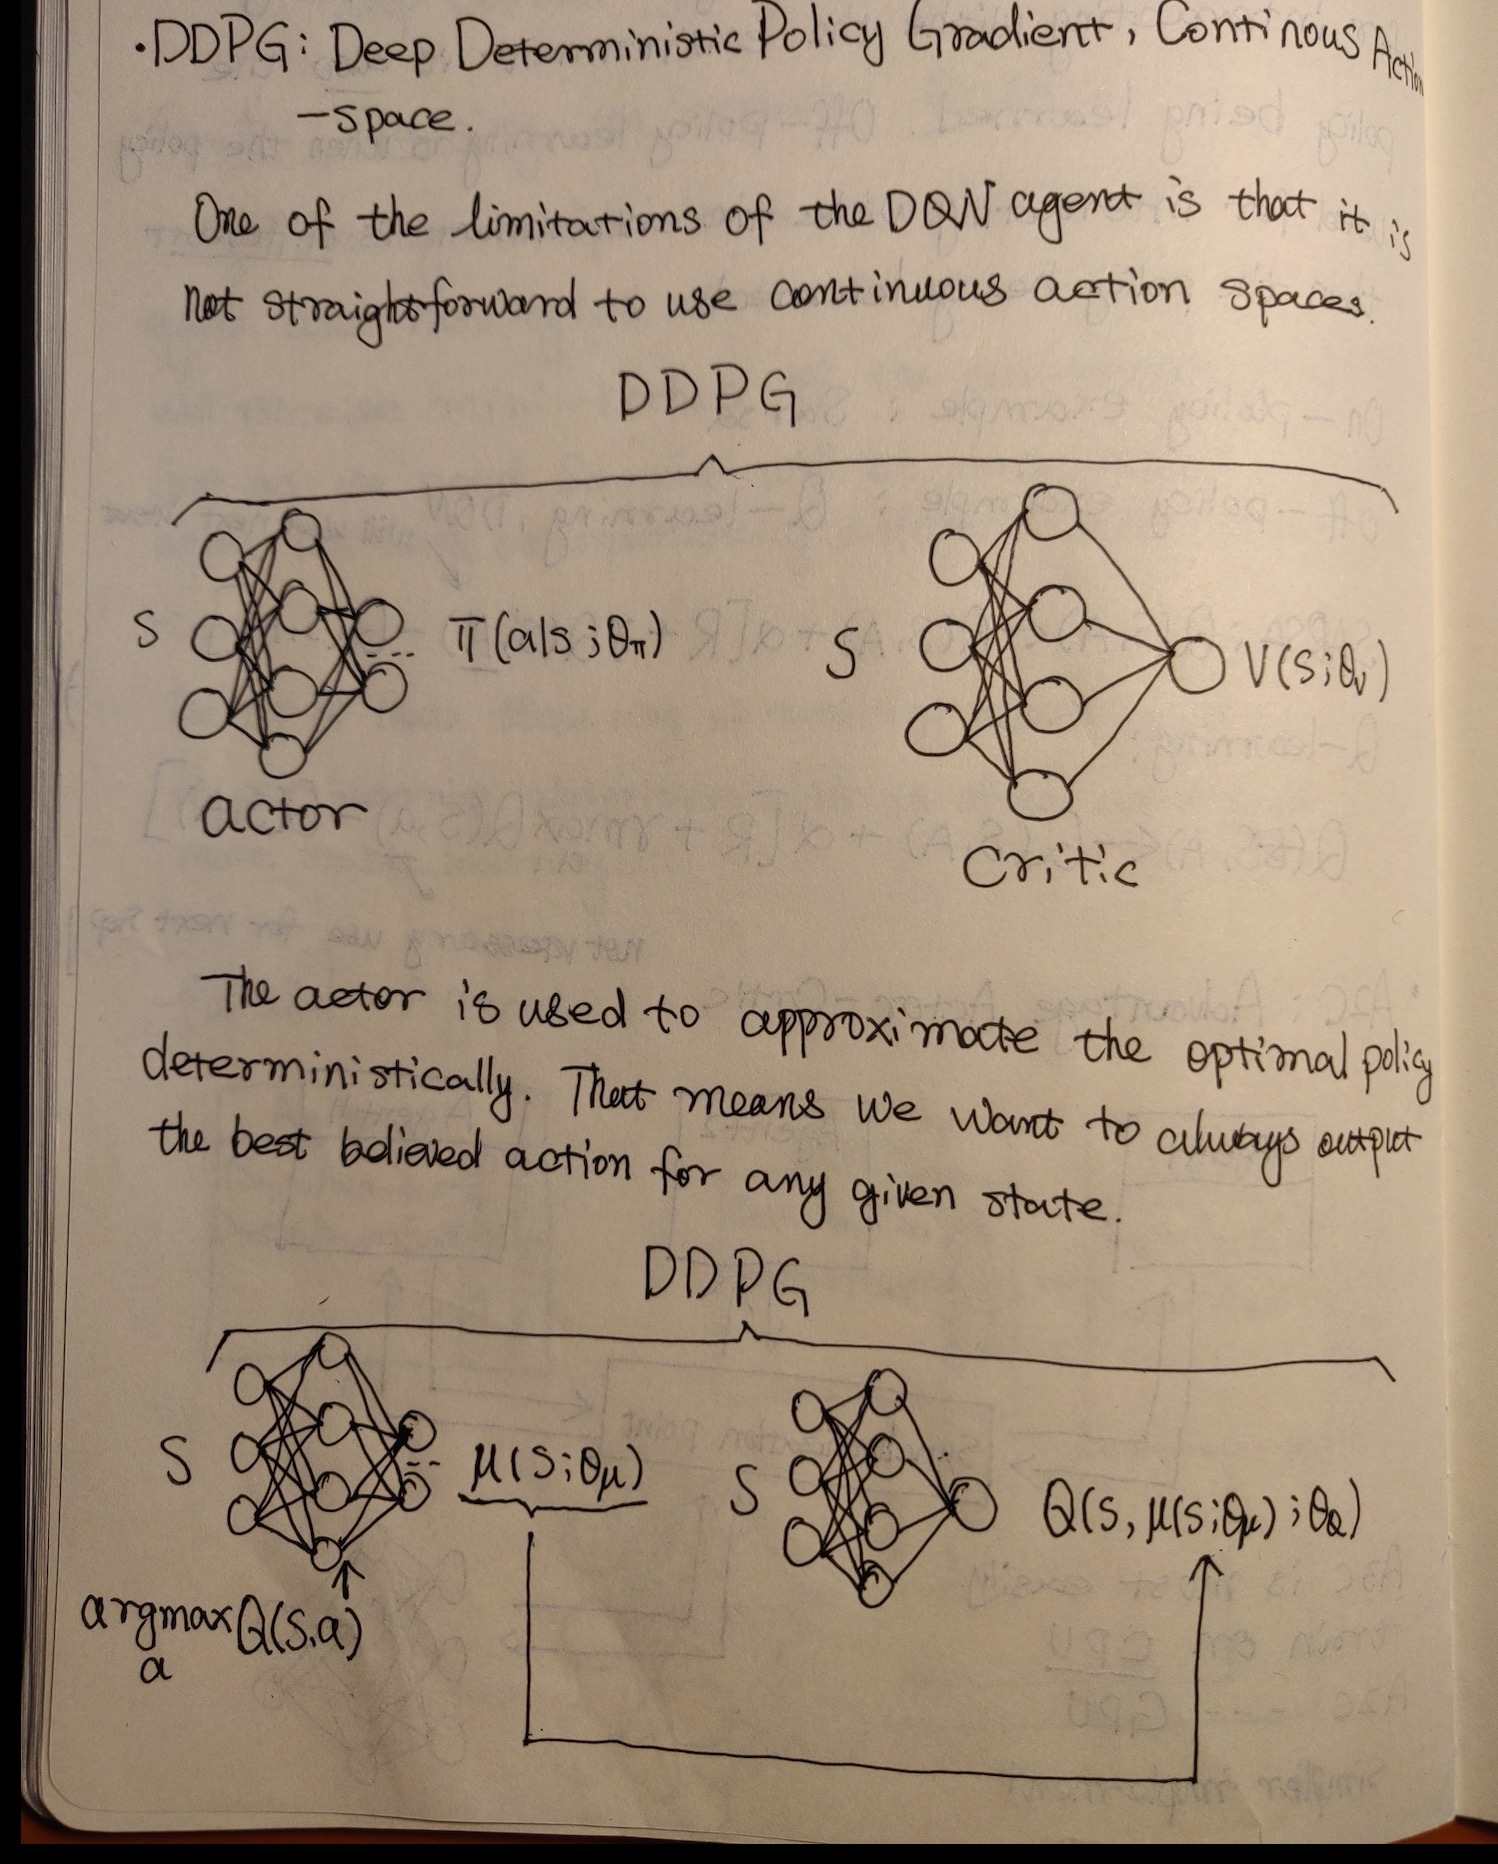 ·DDPG: Deep Deterministic Policy Gradient, Continous Action
-space.
One of the limitations of the DQN agent is that it is
not straightforward to use continuous action spaces.
DDPG
S π(a|s;θπ) S V(s;θv)
actor
Critic
The actor is used to approximate the optimal policy
deterministically. That means we want to always output
the best believed action for any given state.
DDPG
S μ(s;θμ) S Q(s, μ(s;θμ);θQ)
argmax Q(s,a)
a